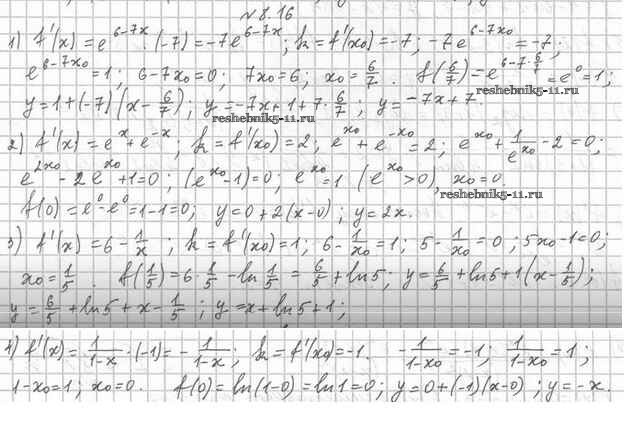 №8.16
1) f'(x)=e^{6-7x}·(-7)=-7e^{6-7x}; k=f'(x₀)=-7; -7e^{6-7x₀}=-7;
e^{6-7x₀}=1; 6-7x₀=0; 7x₀=6; x₀=6/7. f(6/7)=e^{6-7·6/7}=e⁰=1;
y=1+(-7)(x-6/7); y=-7x+1+7·6/7; y=-7x+7.
reshebnik5-11.ru
reshebnik5-11.ru
2) f'(x)=eˣ+e⁻ˣ; k=f'(x₀)=2; e^{x₀}+e^{-x₀}=2; e^{x₀}+1/e^{x₀}-2=0;
e^{2x₀}-2e^{x₀}+1=0; (e^{x₀}-1)=0; e^{x₀}=1 (e^{x₀}>0), x₀=0
reshebnik5-11.ru
f(0)=e⁰-e⁰=1-1=0; y=0+2(x-0); y=2x.
3) f'(x)=6-1/x; k=f'(x₀)=1; 6-1/x₀=1; 5-1/x₀=0; 5x₀-1=0;
x₀=1/5 f(1/5)=6·1/5-ln1/5=6/5+ln5; y=6/5+ln5+1(x-1/5);
y=6/5+ln5+x-1/5; y=x+ln5+1;
4) f'(x)=1/(1-x)·(-1)=-1/(1-x); k=f'(x₀)=-1. -1/(1-x₀)=-1; 1/(1-x₀)=1;
1-x₀=1; x₀=0. f(0)=ln(1-0)=ln1=0; y=0+(-1)(x-0); y=-x.